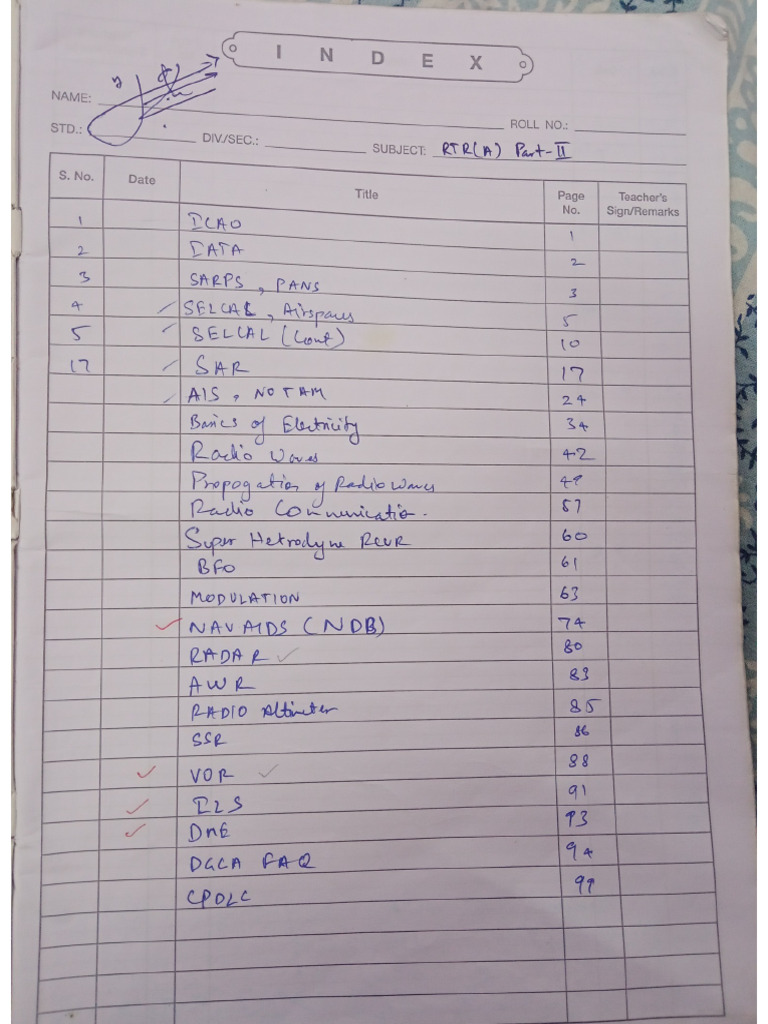 INDEX
NAME:
ROLL NO.:
STD.:
DIV/SEC.:
SUBJECT: RTR(A) Part-II
S. No. Date Title Page No. Teacher's Sign/Remarks
1 ICAO 1
2 IATA 2
3 SARPS, PANS 3
4 SELCAL, Airspaces 5
5 SELCAL (Cont) 10
17 SAR 17
AIS, NOTAM 24
Basics of Electricity 34
Radio Waves 42
Propogation of Radio Waves 49
Radio Communication. 57
Super Hetrodyne RCVR 60
BFO 61
MODULATION 63
NAV AIDS (NDB) 74
RADAR 80
AWR 83
RADIO Altimeter 85
SSR 86
VOR 88
ILS 91
DME 93
DGCA FAQ 94
CPDLC 99